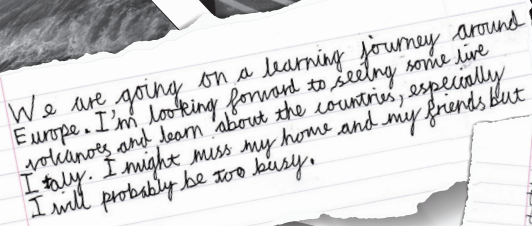 We are going on a learning journey around
Europe. I'm looking forward to seeing some live
volcanoes and learn about the countries, especially
Italy. I might miss my home and my friends but
I will probably be too busy.